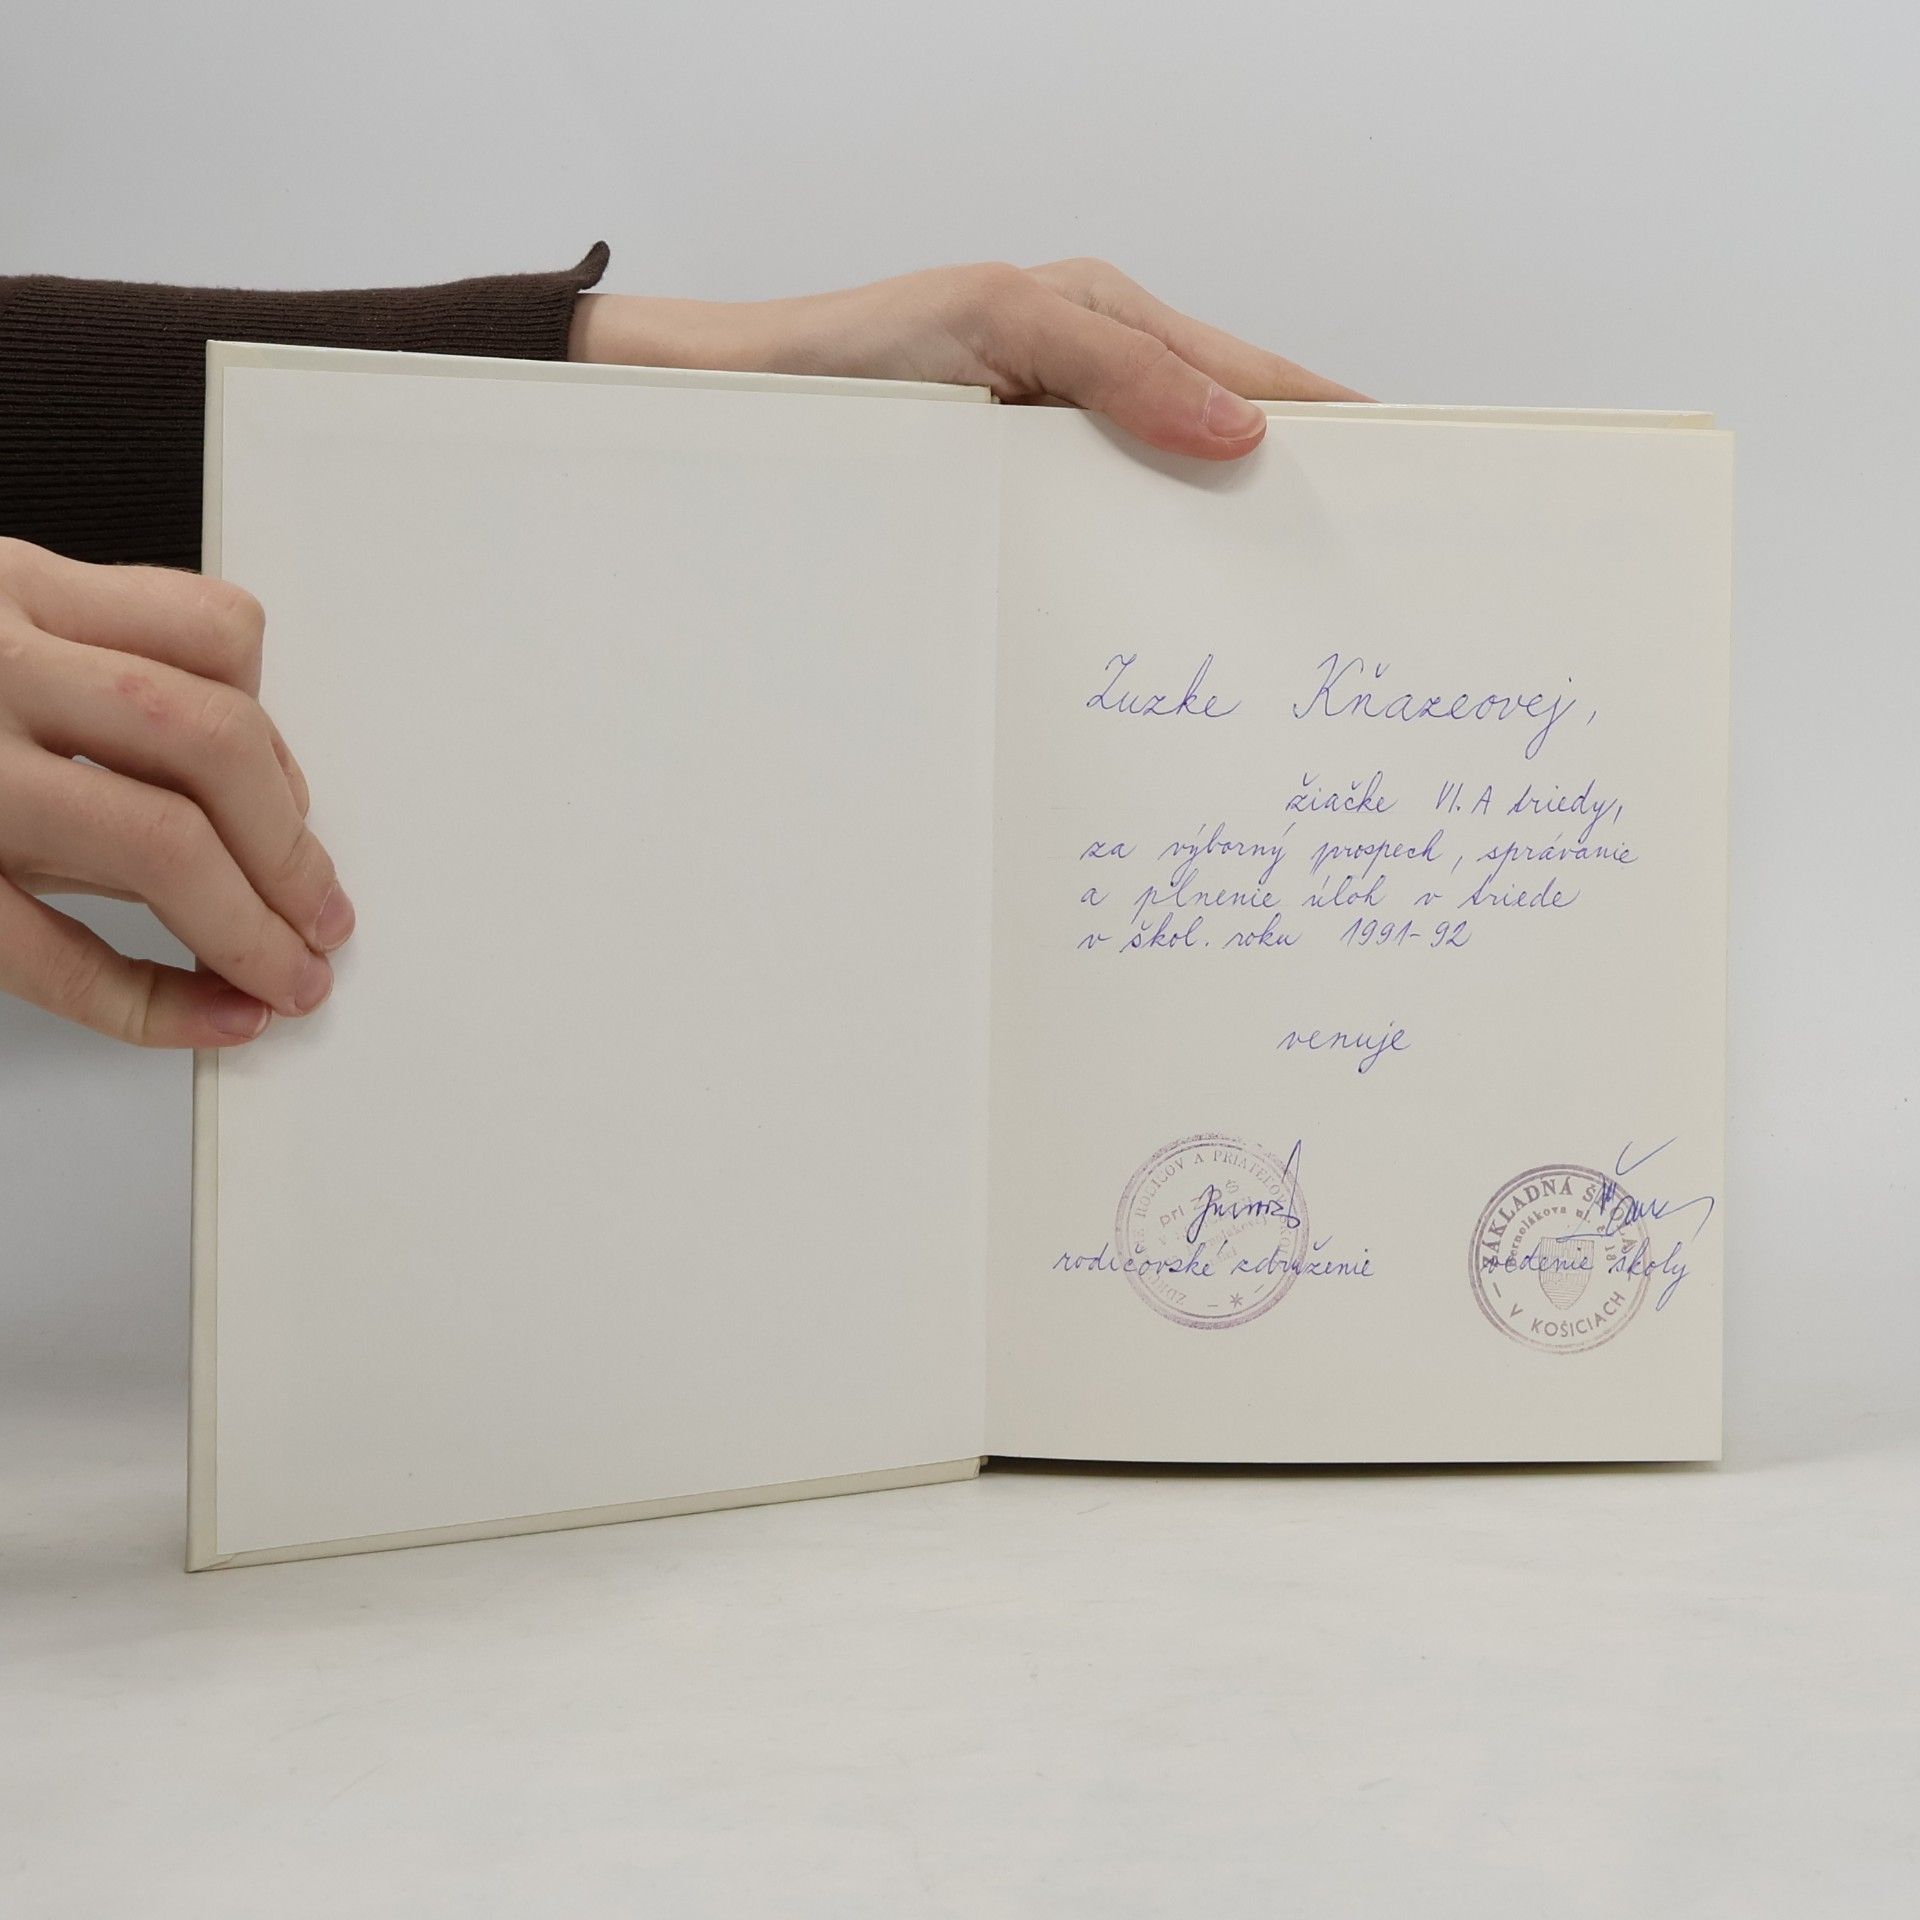 Zuzke Kňazeovej,
žiačke VI. A triedy,
za výborný prospech, správanie
a plnenie úloh v triede
v škol. roku 1991-92
venuje
ZDRUŽENIE RODIČOV A PRIATEĽOV ŠKOLY
pri ZDŠ
rodičovské združenie
ZÁKLADNÁ ŠKOLA
Bernolákova ul. č. 18
V KOŠICIACH
vedenie školy